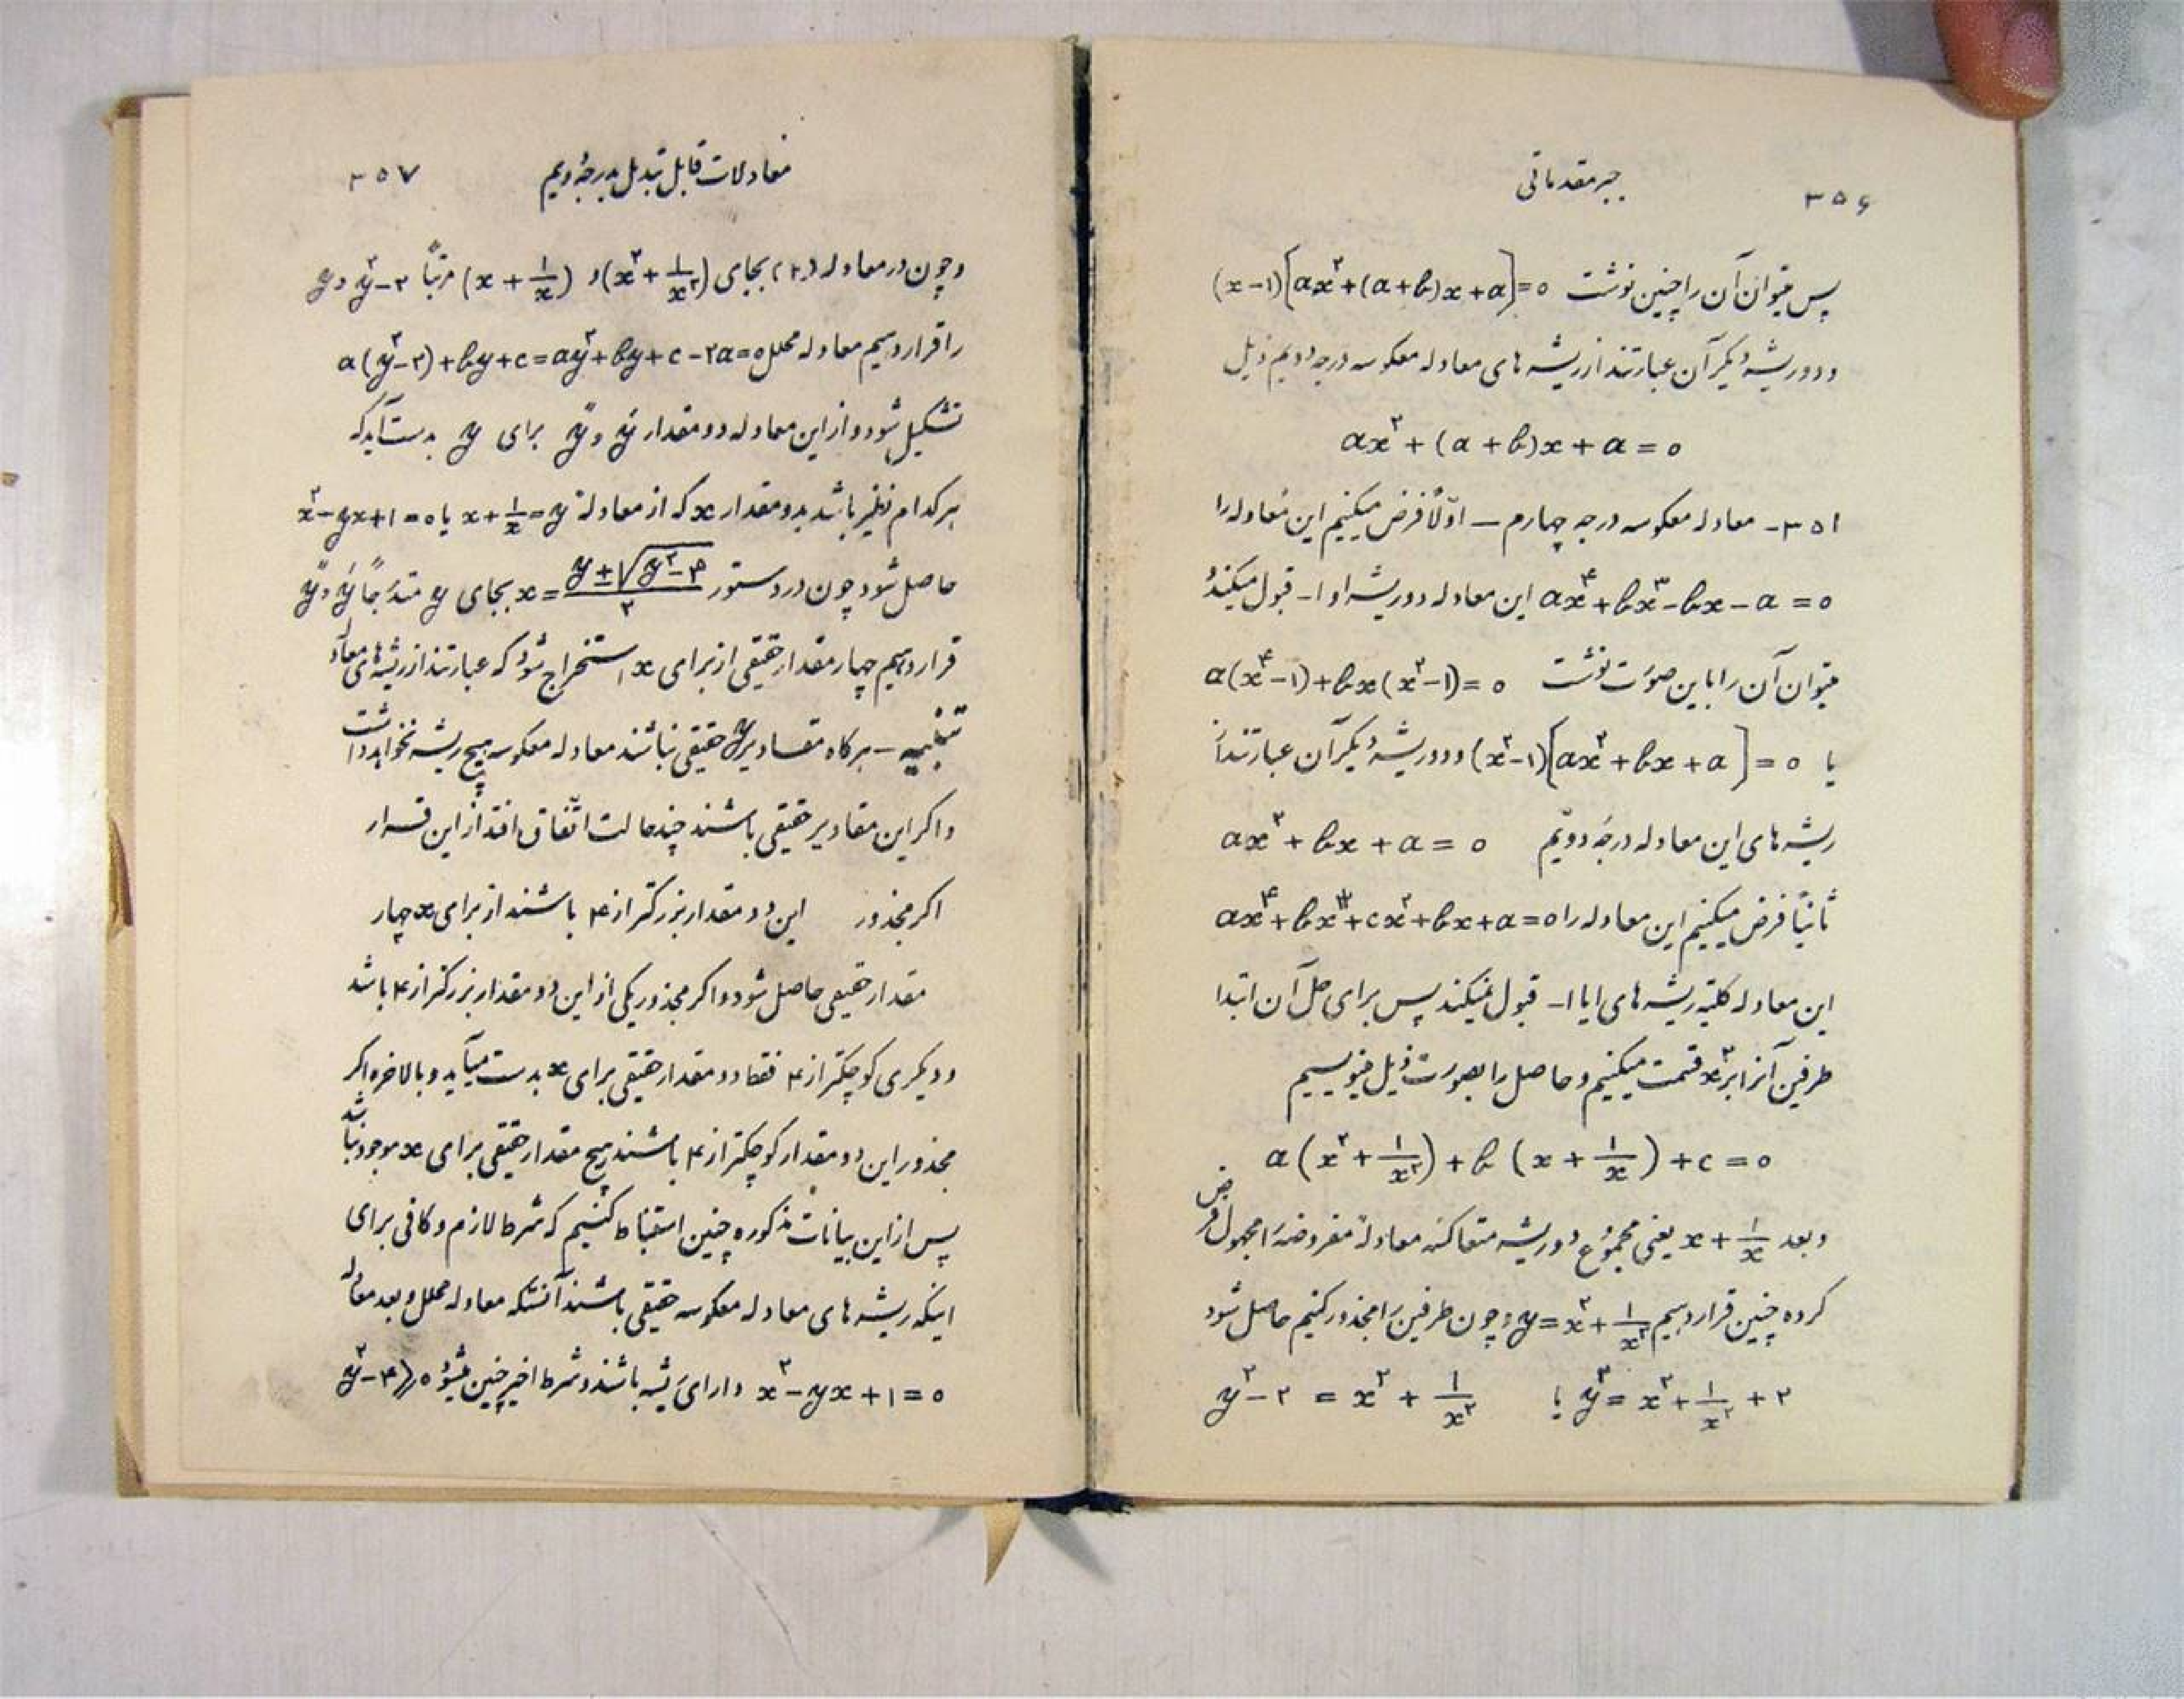 ۳۵۶ جبر مقدماتی
پس میتوان آن را چنین نوشت (x-۱)[ax^۲+(a+b)x+a]=۰
و دو ریشهٔ دیگر آن عبارتند از ریشه های معادله معکوسه درجه دویم ذیل
ax^۲ + (a + b)x + a = ۰
۳۵۱- معادله معکوسه درجه چهارم – اوّلاً فرض میکنیم این معادله را
ax^۴+bx^۳-bx-a=۰ این معادله دو ریشه ۱ و ۱- قبول میکند و
میتوان آن را باین صورت نوشت a(x^۴-۱)+bx(x^۲-۱)=۰
یا (x^۲-۱)[ax^۲+bx+a]=۰ و دو ریشهٔ دیگر آن عبارتند از
ریشه های این معادله درجه دویّم ax^۲ + bx + a = ۰
ثانیاً فرض میکنیم این معادله را ax^۴+bx^۳+cx^۲+bx+a=۰
این معادله کلیّه ریشه های ۱ یا ۱- قبول نمیکند پس برای حل آن ابتدا
طرفین آنرا بر x^۲ قسمت میکنیم و حاصل را بصورت ذیل مینویسیم
a(x^۲+\frac{۱}{x^۲})+b(x+\frac{۱}{x})+c=۰
و بعد x+\frac{۱}{x} یعنی مجموع دو ریشه متعاکسه معادلهٔ مفروضه را مجهول فرض
کرده چنین قرار دهیم y=x^۲+\frac{۱}{x^۲} و چون طرفین را مجذور کنیم حاصل شود
y^۲=x^۲+\frac{۱}{x^۲}+۲ یا y^۲-۲=x^۲+\frac{۱}{x^۲}
معادلات قابل تبدیل بدرجهٔ دویم ۳۵۷
و چون در معادله (۲) بجای (x^۲+\frac{۱}{x^۲}) و (x+\frac{۱}{x}) مرتباً y^۲-۲ و y
را قرار دهیم معادله محلل a(y^۲-۲)+by+c=ay^۲+by+c-۲a=۰
تشکیل شود و از این معادله دو مقدار y′ و y″ برای y بدست آید که
هر کدام نظیر باشد بدو مقدار x که از معادلهٔ x+\frac{۱}{x}=y یا x^۲-yx+۱=۰
حاصل شود چون در دستور x=\frac{y±\sqrt{y^۲-۴}}{۲} بجای y متدرجاً y′ و y″
قرار دهیم چهار مقدار حقیقی از برای x استخراج شود که عبارتند از ریشه های معادله
تنبیه – هرگاه مقادیر y حقیقی نباشند معادله معکوسه هیچ ریشه نخواهد داشت
و اگر این مقادیر حقیقی باشند چند حالت اتّفاق افتد از این قرار
اگر مجذور این دو مقدار بزرگتر از ۴ باشند از برای x چهار
مقدار حقیقی حاصل شود و اگر مجذور یکی از این دو مقدار بزرگتر از ۴ باشد
و دیگری کوچکتر از ۴ فقط دو مقدار حقیقی برای x بدست میآید و بالاخره اگر
مجذور این دو مقدار کوچکتر از ۴ باشند هیچ مقدار حقیقی برای x موجود نباشد
پس از این بیانات مذکوره چنین استنباط کنیم که شرط لازم و کافی برای
اینکه ریشه های معادله معکوسه حقیقی باشند آنستکه معادله محلل و بعد معادله
x^۲-yx+۱=۰ دارای ریشه باشند و شرط اخیر چنین میشود y^۲-۴⩾۰